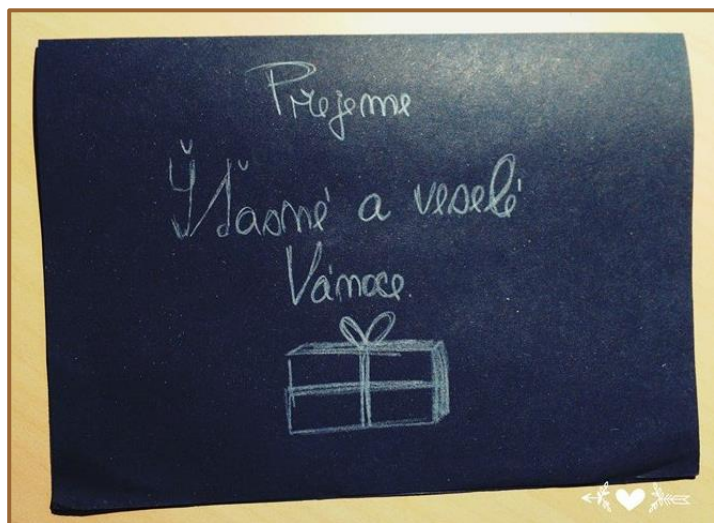 Přejeme
Šťasné a veselé
Vánoce.